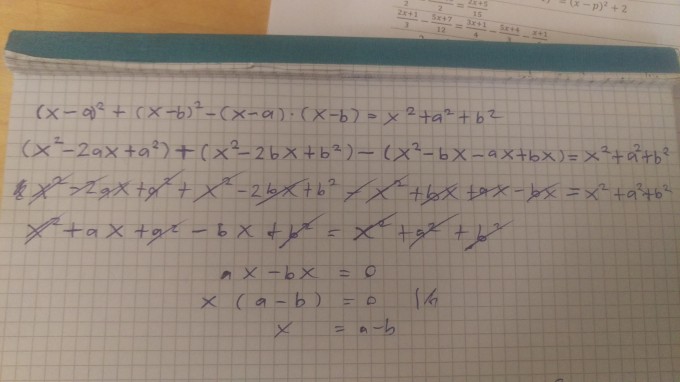 = (x − p)² + 2
2 = 2x+5/15
2x+1/3 − 5x+7/12 = 3x+1/4 − 5x+4/3 − x+1
(x−a)² + (x−b)² − (x−a)·(x−b) = x²+a²+b²
(x²−2ax+a²) + (x²−2bx+b²) − (x²−bx−ax+bx) = x²+a²+b²
x² − 2ax + a² + x² − 2bx + b² − x² + bx + ax − bx = x²+a²+b²
x² + ax + a² − bx + b² = x² + a² + b²
ax − bx = 0
x (a − b) = 0
x = a−b